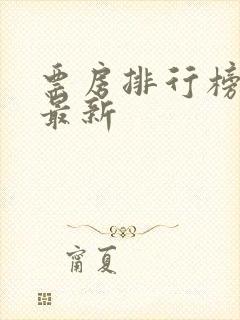 票房排行榜
最新
甯夏